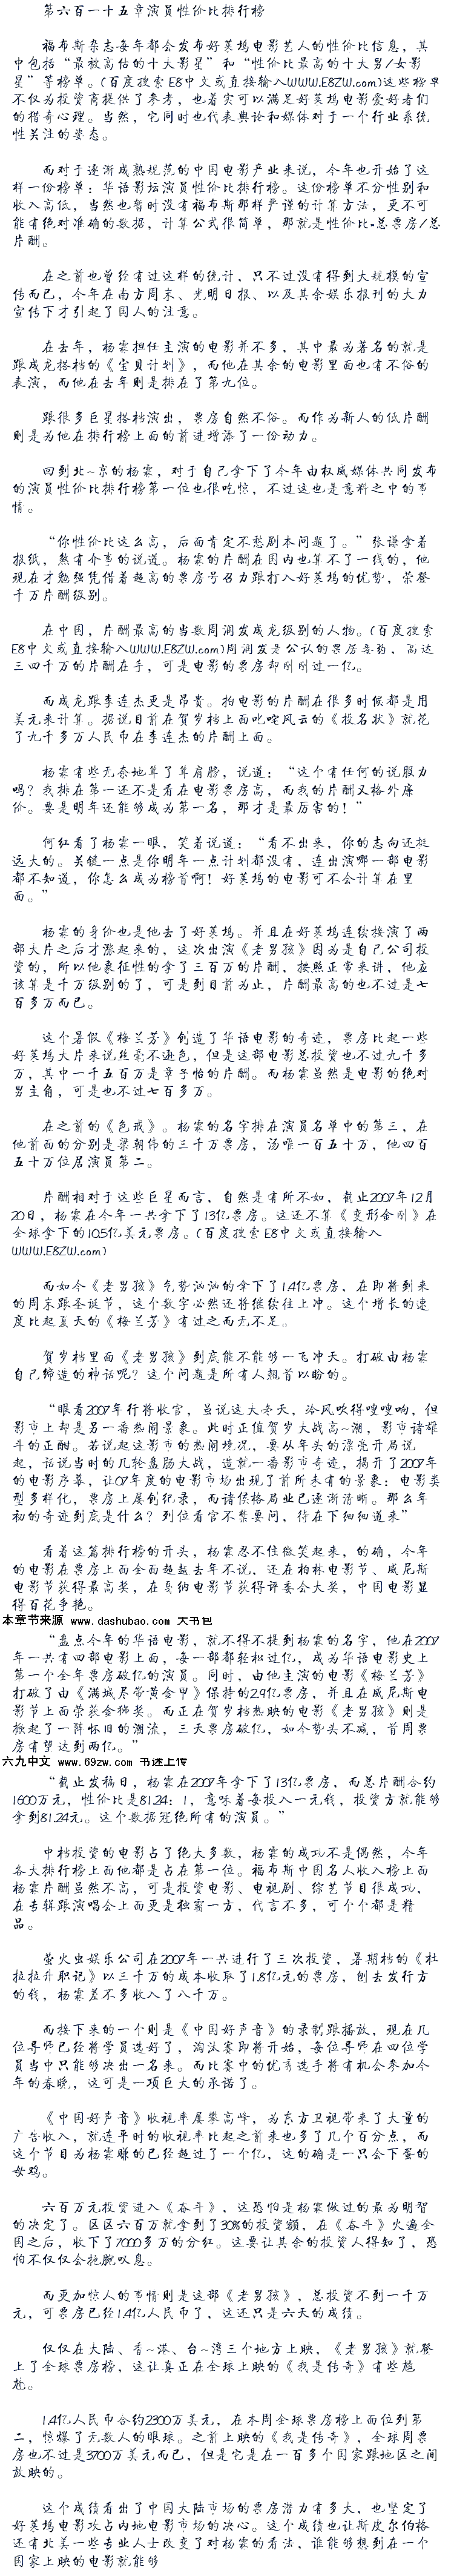 第六百一十五章演员性价比排行榜
福布斯杂志每年都会发布好莱坞电影艺人的性价比信息，其
中包括“最被高估的十大影星”和“性价比最高的十大男/女影
星”等榜单。(百度搜索E8中文或直接输入WWW.E8ZW.com)这些榜单
不仅为投资商提供了参考，也着实可以满足好莱坞电影爱好者们
的猎奇心理。当然，它同时也代表舆论和媒体对于一个行业系统
性关注的姿态。
而对于逐渐成熟规范的中国电影产业来说，今年也开始了这
样一份榜单：华语影坛演员性价比排行榜。这份榜单不分性别和
收入高低，当然也暂时没有福布斯那样严谨的计算方法，更不可
能有绝对准确的数据，计算公式很简单，那就是性价比=总票房/总
片酬。
在之前也曾经有过这样的统计，只不过没有得到大规模的宣
传而已，今年在南方周末、光明日报、以及其余娱乐报刊的大力
宣传下才引起了国人的注意。
在去年，杨霖担任主演的电影并不多，其中最为著名的就是
跟成龙搭档的《宝贝计划》，而他在其余的电影里面也有不俗的
表演，而他在去年则是排在了第九位。
跟很多巨星搭档演出，票房自然不俗。而作为新人的低片酬
则是为他在排行榜上面的前进增添了一份动力。
回到北~京的杨霖，对于自己拿下了今年由权威媒体共同发布
的演员性价比排行榜第一位也很吃惊，不过这也是意料之中的事
情。
“你性价比这么高，后面肯定不愁剧本问题了。”张谦拿着
报纸，煞有介事的说道。杨霖的片酬在国内也算不了一线的，他
现在才勉强凭借着超高的票房号召力跟打入好莱坞的优势，荣登
千万片酬级别。
在中国，片酬最高的当数周润发成龙级别的人物。(百度搜索
E8中文或直接输入WWW.E8ZW.com)周润发是公认的票房毒药，高达
三四千万的片酬在手，可是电影的票房却刚刚过一亿。
而成龙跟李连杰更是昂贵。拍电影的片酬在很多时候都是用
美元来计算。据说目前在贺岁档上面叱咤风云的《投名状》就花
了九千多万人民币在李连杰的片酬上面。
杨霖有些无奈地耸了耸肩膀，说道：“这个有任何的说服力
吗？我排在第一还不是看在电影票房高，而我的片酬又格外廉
价。要是明年还能够成为第一名，那才是最厉害的！”
何红看了杨霖一眼，笑着说道：“看不出来，你的志向还挺
远大的。关键一点是你明年一点计划都没有，连出演哪一部电影
都不知道，你怎么成为榜首啊！好莱坞的电影可不会计算在里
面。”
杨霖的身价也是他去了好莱坞。并且在好莱坞连续接演了两
部大片之后才涨起来的，这次出演《老男孩》因为是自己公司投
资的，所以他象征性的拿了三百万的片酬，按照正常来讲，他应
该算是千万级别的了，可是到目前为止，片酬最高的也不过是七
百多万而已。
这个暑假《梅兰芳》创造了华语电影的奇迹，票房比起一些
好莱坞大片来说丝毫不逊色，但是这部电影总投资也不过九千多
万，其中一千五百万是章子怡的片酬。而杨霖虽然是电影的绝对
男主角，可是也不过七百多万。
在之前的《色戒》。杨霖的名字排在演员名单中的第三，在
他前面的分别是梁朝伟的三千万票房，汤唯一百五十万，他四百
五十万位居演员第二。
片酬相对于这些巨星而言，自然是有所不如，截止2007年12月
20日，杨霖在今年一共拿下了13亿票房。这还不算《变形金刚》在
全球拿下的10.5亿美元票房。(百度搜索E8中文或直接输入
WWW.E8ZW.com)
而如今《老男孩》气势汹汹的拿下了1.4亿票房，在即将到来
的周末跟圣诞节，这个数字必然还将继续往上冲。这个增长的速
度比起夏天的《梅兰芳》有过之而无不足。
贺岁档里面《老男孩》到底能不能够一飞冲天。打破由杨霖
自己缔造的神话呢？这个问题是所有人翘首以盼的。
“眼看2007年行将收官，虽说这大冬天，冷风吹得嗖嗖响，但
影市上却是另一番热闹景象。此时正值贺岁大战高~潮，影市诸雄
斗的正酣。若说起这影市的热闹境况，要从年头的漂亮开局说
起，话说当时的几轮盘肠大战，造就一番影市奇迹，揭开了2007年
的电影序幕，让07年度的电影市场出现了前所未有的景象：电影类
型多样化，票房上屡创纪录，而诸侯格局业已逐渐清晰。那么年
初的奇迹到底是什么？列位看官不禁要问，待在下细细道来”
看着这篇排行榜的开头，杨霖忍不住微笑起来，的确，今年
的电影在票房上面全面超越去年不说，还在柏林电影节、威尼斯
电影节获得最高奖，在戛纳电影节获得评委会大奖，中国电影显
得百花争艳。
本章节来源 www.dashubao.com 大书包
“盘点今年的华语电影，就不得不提到杨霖的名字，他在2007
年一共有四部电影上面，每一部都轻松过亿，成为华语电影史上
第一个全年票房破亿的演员。同时，由他主演的电影《梅兰芳》
打破了由《满城尽带黄金甲》保持的2.9亿票房，并且在威尼斯电
影节上面荣获金狮奖。而正在贺岁档热映的电影《老男孩》则是
掀起了一阵怀旧的潮流，三天票房破亿，如今势头不减，首周票
房有望达到两亿。”
六九中文 www.69zw.com 书迷上传
“截止发稿日，杨霖在2007年拿下了13亿票房，而总片酬合约
1600万元，性价比是81.24：1，意味着每投入一元钱，投资方就能够
拿到81.24元。这个数据冠绝所有的演员。”
中档投资的电影占了绝大多数，杨霖的成功不是偶然，今年
各大排行榜上面他都是占在第一位。福布斯中国名人收入榜上面
杨霖片酬虽然不高，可是投资电影、电视剧、综艺节目很成功，
在专辑跟演唱会上面更是独霸一方，代言不多，可个个都是精
品。
萤火虫娱乐公司在2007年一共进行了三次投资，暑期档的《杜
拉拉升职记》以三千万的成本收取了1.8亿元的票房，刨去发行方
的钱，杨霖差不多收入了八千万。
而接下来的一个则是《中国好声音》的录制跟播放，现在几
位导师已经将学员选好了，淘汰赛即将开始，每位导师在四位学
员当中只能够决出一名来。而比赛中的优秀选手将有机会参加今
年的春晚，这可是一项巨大的承诺了。
《中国好声音》收视率屡攀高峰，为东方卫视带来了大量的
广告收入，就连平时的收视率比起之前来也多了几个百分点，而
这个节目为杨霖赚的已经超过了一个亿，这的确是一只会下蛋的
母鸡。
六百万元投资进入《奋斗》，这恐怕是杨霖做过的最为明智
的决定了。区区六百万就拿到了30%的投资额，在《奋斗》火遍全
国之后，收下了7000多万的分红。这要让其余的投资人得知了，恐
怕不仅仅会扼腕叹息。
而更加惊人的事情则是这部《老男孩》，总投资不到一千万
元，可票房已经1.4亿人民币了，这还只是六天的成绩。
仅仅在大陆、香~港、台~湾三个地方上映，《老男孩》就登
上了全球票房榜，这让真正在全球上映的《我是传奇》有些尴
尬。
1.4亿人民币合约2300万美元，在本周全球票房榜上面位列第
二，惊爆了无数人的眼球。之前上映的《我是传奇》，全球周票
房也不过是3700万美元而已，但是它是在一百多个国家跟地区之间
放映的。
这个成绩看出了中国大陆市场的票房潜力有多大，也坚定了
好莱坞电影攻占内地电影市场的决心。这个成绩也让斯皮尔伯格
还有北美一些专业人士改变了对杨霖的看法，谁能够想到在一个
国家上映的电影就能够